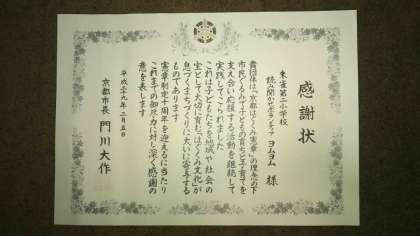 感謝状
朱雀第二小学校
読み聞かせボランティア ヨムヨム 様
貴団体は「京都はぐくみ憲章」の理念の下
市民ぐるみで子どもの育ちと子育てを
支え合い応援する活動を継続して
実践してこられました
これは子どもたちを地域や社会の
宝として大切に育む「はぐくみ文化」が
息づくまちづくりに大いに寄与する
ものであります
憲章制定十周年を迎えるに当たり
これまでの御尽力に対し深く感謝の
意を表します
平成二十九年二月五日
京都市長 門川大作